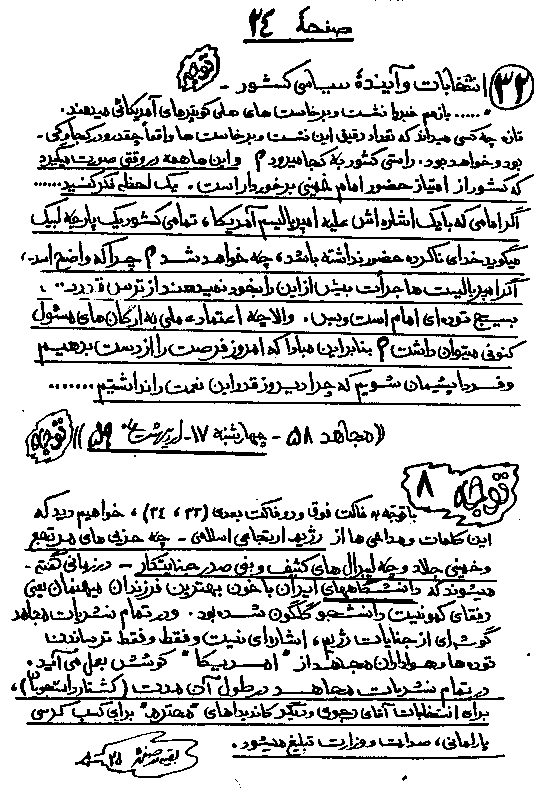 صفحهٔ ۲۴
۳۲ انتخابات و آیندهٔ سیاسی کشور - توجه
"..... بازهم خبر از نشست و برخاست های هلی کوپترهای آمریکائی میدهند.
تازه چه کسی میداند که تعداد دقیق این نشست و برخاست ها واقعاً چقدر و در کجاها و کی -
بود و خواهد بود. راستی کشور به کجا میرود؟ و این ها همه در وقتی صورت میگیرد
که کشور از امتیاز حضور امام خمینی برخوردار است. یک لحظه فکر کنید......
اگر امامی که با یک اشاره اش علیه امپریالیسم آمریکا، تمامی کشور یک پارچه لبیک
میگوید خدای ناکرده حضور نداشته باشد، چه خواهد شد؟ چرا که واضح است،
اگر امپریالیست ها جرأت بیش از این را بخود نمیدهند از ترس قدرت
بسیج توده ای امام است و بس. والا چه اعتماد ملی به ارگان های مسئول
کنونی میتوان داشت؟ بنابراین مبادا که امروز فرصت را از دست بدهیم
و فردا پشیمان شویم که چرا دیروز قدر این نعمت را ندانستیم.......
(( مجاهد ۵۸ - چهارشنبه ۱۷ - اردیبهشت ماه ۵۹ )) توجه
توجه ۸
با توجه به فاکت فوق و دو فاکت بعدی (۳۳ ، ۳۴) ، خواهیم دید که
این کلمات و مداحی ها از رژیم ارتجاعی اسلامی - چه حزبی های مرتجع
و خمینی جلاد و چه لیبرال های کثیف و بنی صدر جنایتکار - در زمانی گفته
میشوند که دانشگاههای ایران با خون بهترین فرزندان میهنمان یعنی
رفقای کمونیست دانشجو گلگون شده بود. و در تمام نشریات مجاهد
گوشه ای از جنایات رژیم، اشاره ای نیست و فقط و فقط ترساندن
توده ها و هواداران مجاهد از "امریکا" کوشش بعمل می آید.
در تمام نشریات مجاهد در طول آن مدت (کشتار دانشجویان)،
برای انتخابات آقای رجوی و دیگر کاندیداهای "محترم" برای کسب کرسی
پارلمانی، صدارت و وزارت تبلیغ میشود.
بقیه در صفحهٔ ۲۸